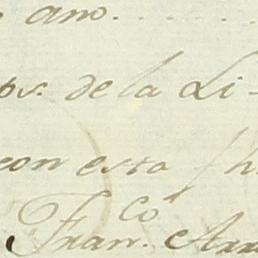 ano. . . . . .
ps. de la Li-
con esta
Fran.co